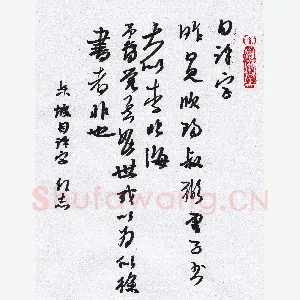 自评字
昨見欧阳叔弼云子书
大似李北海
予亦觉其如世或以为似徐
書者非也
东坡自评字
Shufawang.CN